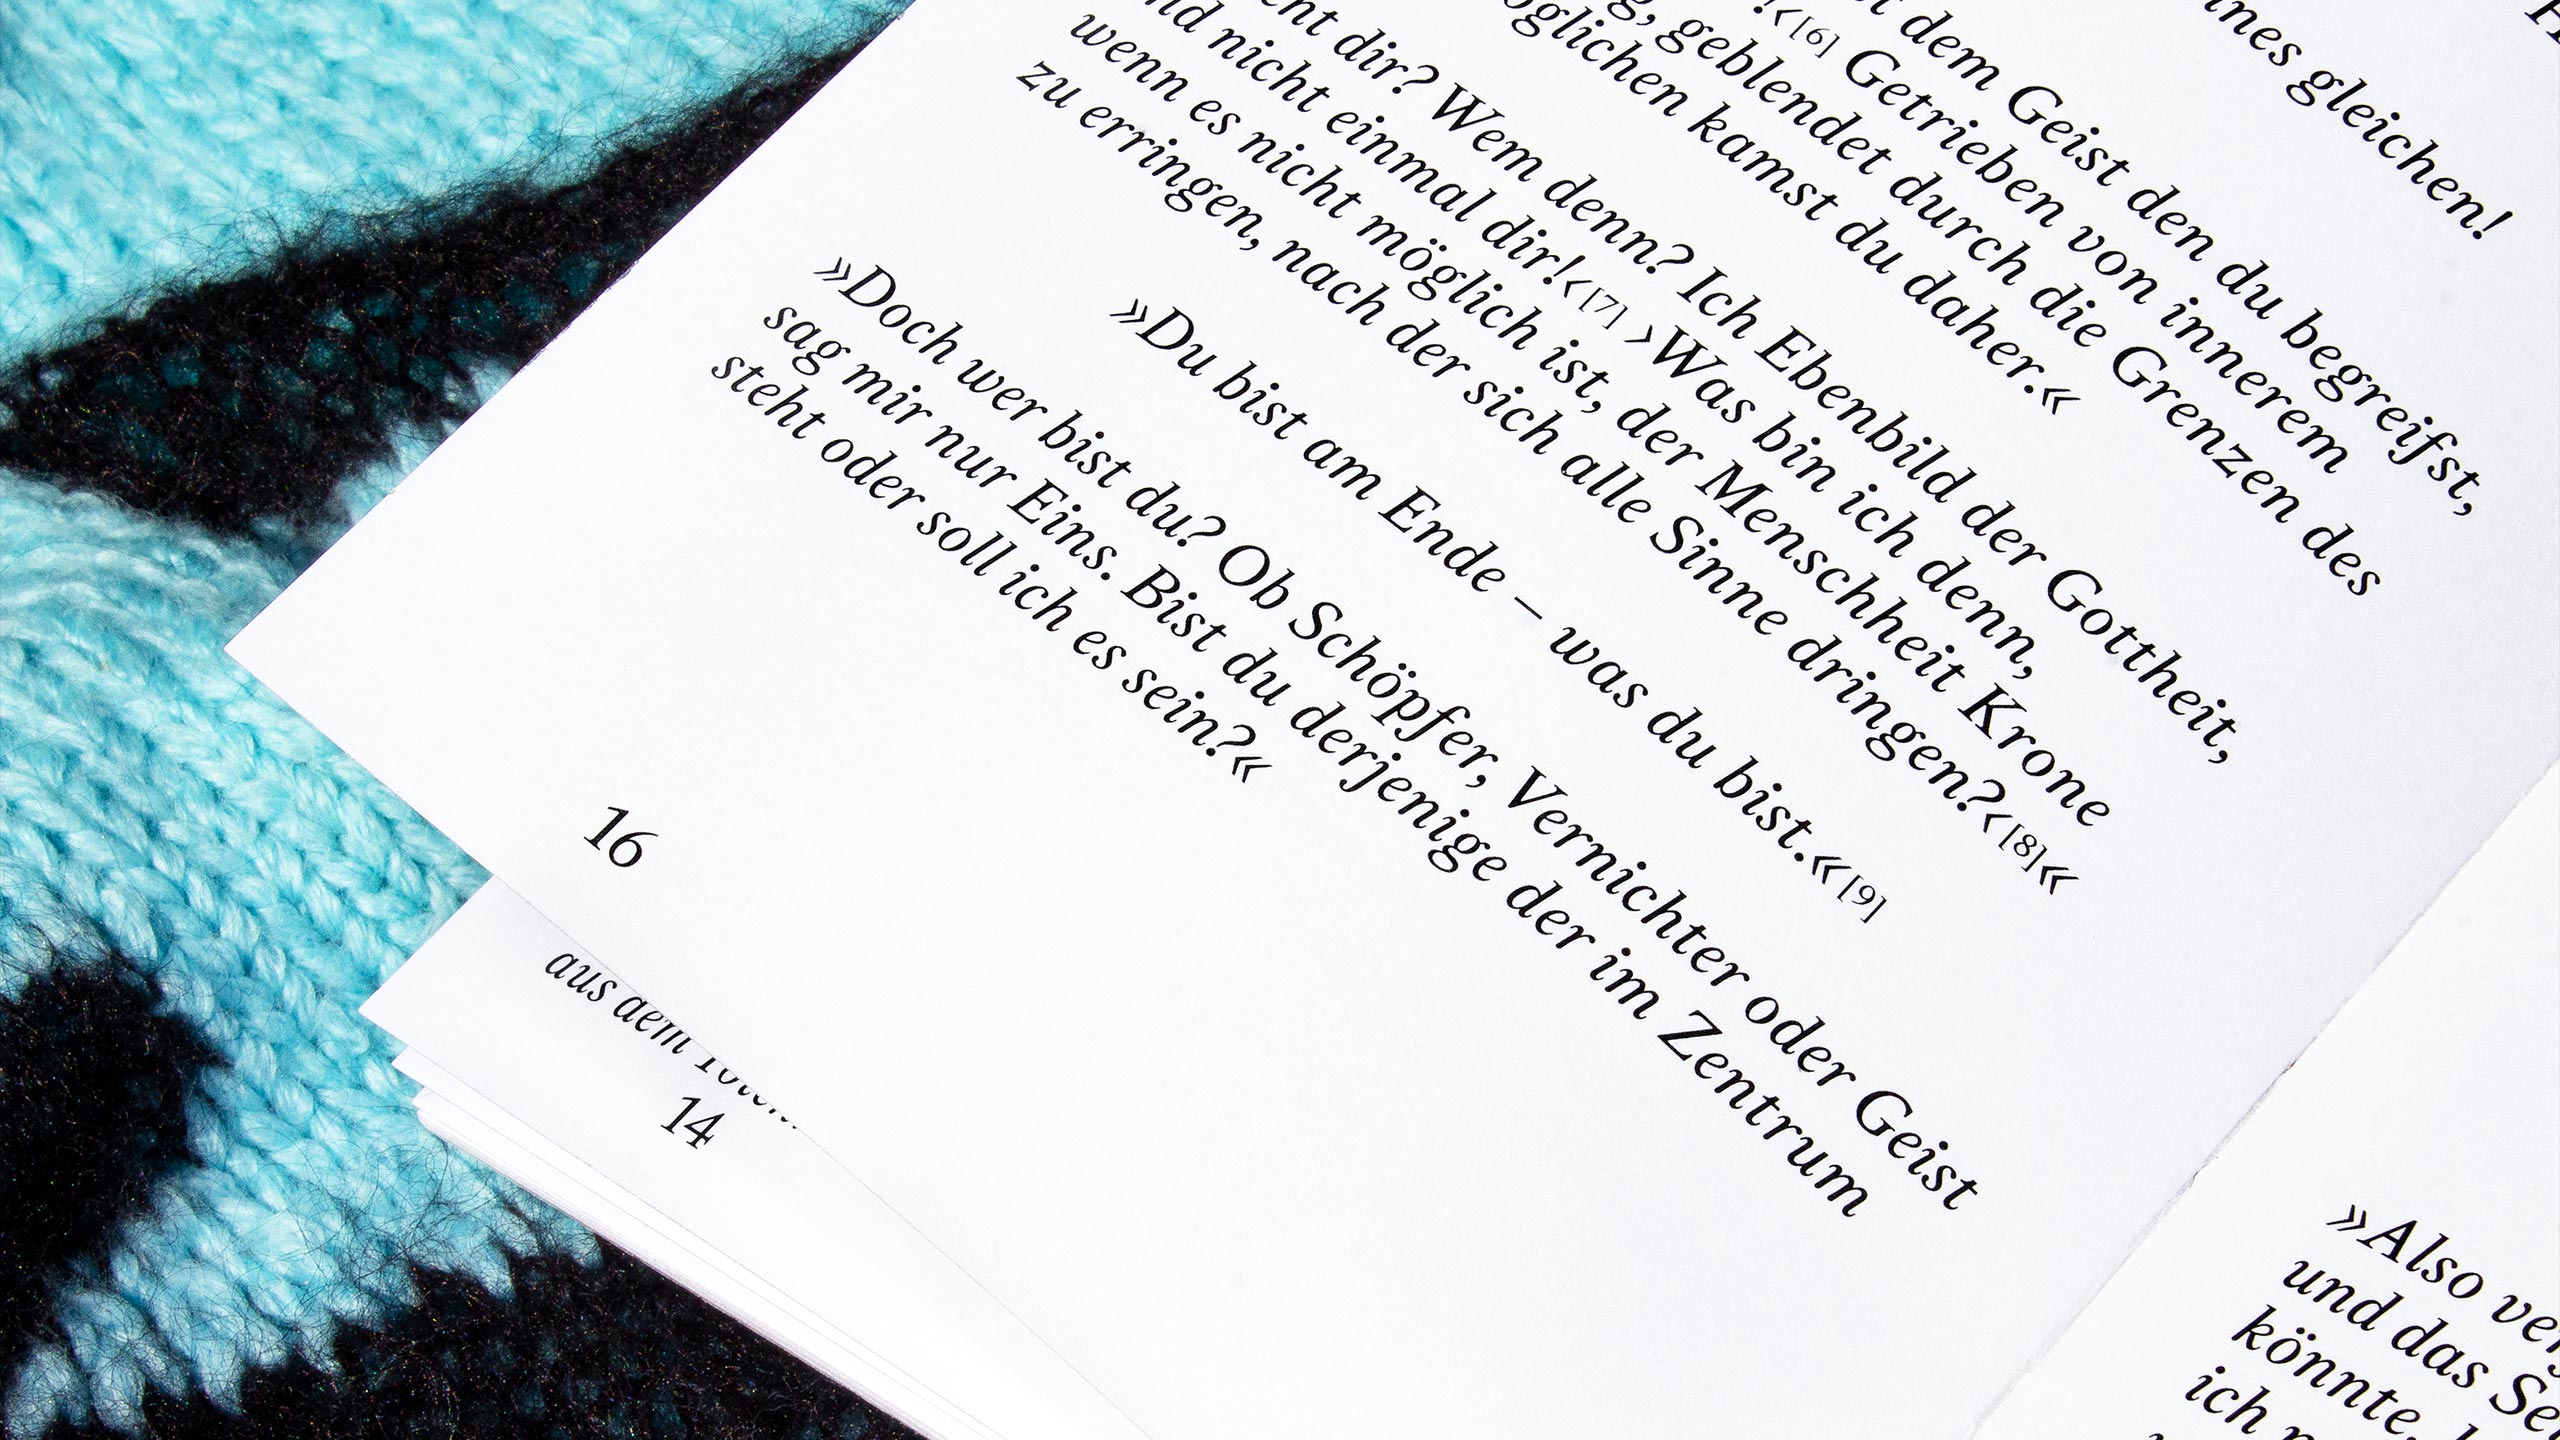 gleichen!
dem Geist den du begreifst,
!‹[6] Getrieben von innerem
geblendet durch die Grenzen des
kamst du daher.«
dir? Wem denn? Ich Ebenbild der Gottheit,
nicht einmal dir!‹[7] ›Was bin ich denn,
wenn es nicht möglich ist, der Menschheit Krone
zu erringen, nach der sich alle Sinne dringen?‹[8]«
»Du bist am Ende – was du bist.«[9]
»Doch wer bist du? Ob Schöpfer, Vernichter oder Geist
sag mir nur Eins. Bist du derjenige der im Zentrum
steht oder soll ich es sein?«
16
aus dem
14
»Also
und das
könnte,
ich